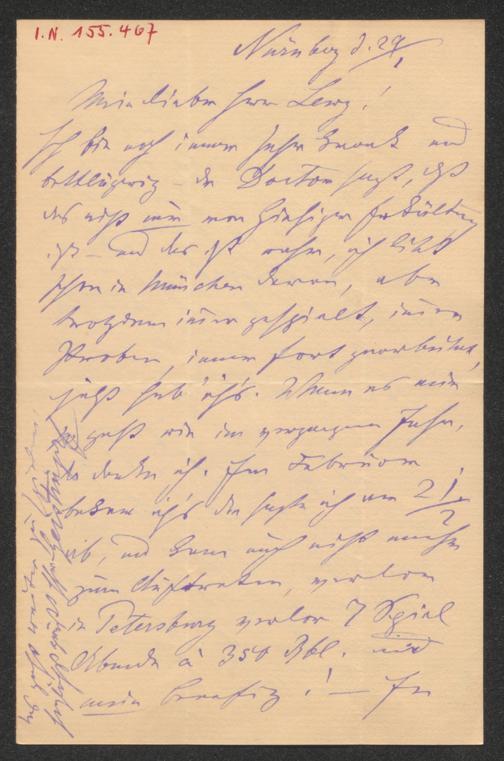 I.N. 155.467
Nürnberg d. 29/1
Mein lieber Herr Lewy!
Ich bin noch immer sehr krank und
bettlägerig – der Doctor sagt, daß
das nicht nur von hiesiger Erkältung
ist – und das ist wahr, ich litt
schon in München daran, aber
trotzdem immer gespielt, immer
Proben, immer fort gearbeitet,
jetzt hab' ich's. Wenn es mir
geht wie im vergangenen Jahr,
so danke ich. Im Februar
bekam ich's da sagte ich am 21/2
ab, und kam auch nicht mehr
zum Auftreten, verlor
in Petersburg verlor 7 Spiel
Abende à 350 Rbl. und
mein Benefiz! – Im